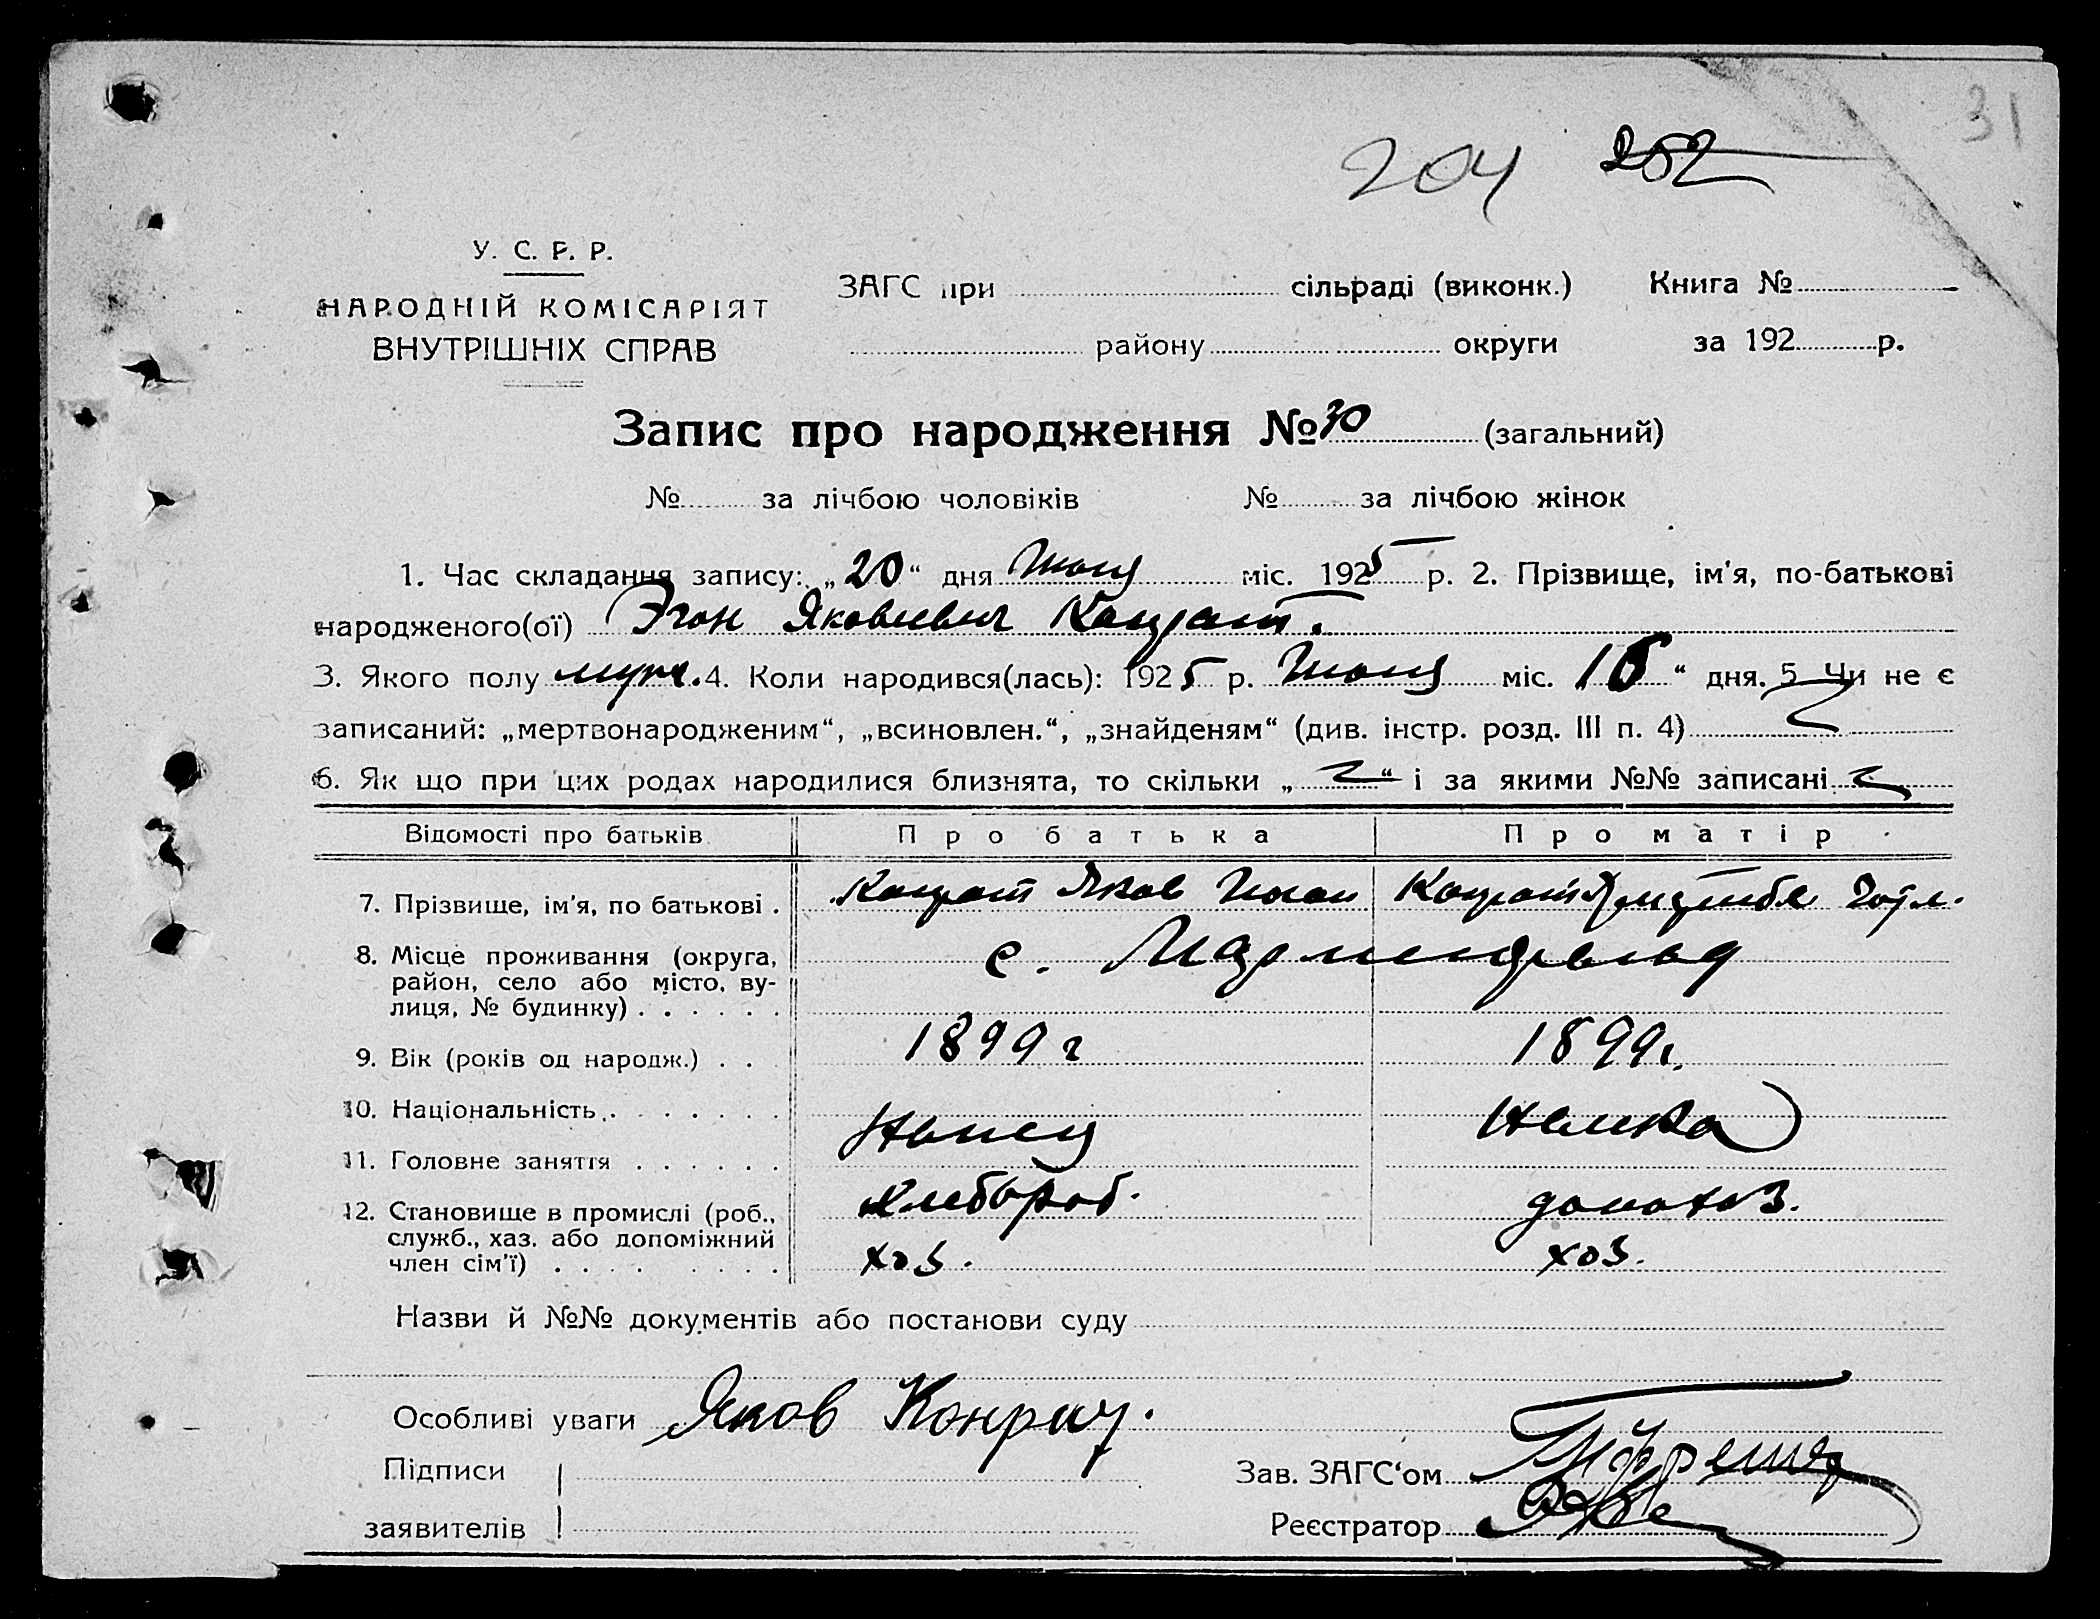 31
204 252
У. С. Р. Р.
НАРОДНІЙ КОМІСАРІЯТ
ВНУТРІШНІХ СПРАВ
ЗАГС при сільраді (виконк.) Книга №
району округи за 192 р.
Запис про народження № 30 (загальний)
№ за лічбою чоловіків № за лічбою жінок
1. Час складання запису: „20“ дня міс. 1925 р. 2. Прізвище, ім'я, по-батькові
народженого(ої) Эгон Яковлевич Конрат.
3. Якого полу муж. 4. Коли народився(лась): 1925 р. міс. „ “ дня. 5. Чи не є
записаний: „мертвонародженим“, „всиновлен.“, „знайденям“ (див. інстр. розд. III п. 4)
6. Як що при цих родах народилися близнята, то скільки „ “ і за якими №№ записані
Відомості про батьків Про батька Про матір
7. Прізвище, ім'я, по батькові . Конрат Яков Иоган Конрат Готл.
8. Місце проживання (округа, с.
район, село або місто, ву-
лиця, № будинку) . . . . . .
9. Вік (років од народж.) . . 1899 г 1899 г.
10. Національність . . . . . . . Немец Немка
11. Головне заняття . . . . . . Хлебороб. домохоз.
12. Становище в промислі (роб.,
служб., хаз. або допоміжний
член сім'ї) . . . . . . . . хоз. хоз.
Назви й №№ документів або постанови суду
Особливі уваги Яков Конрад.
Підписи
Зав. ЗАГС'ом
заявителів
Реєстратор